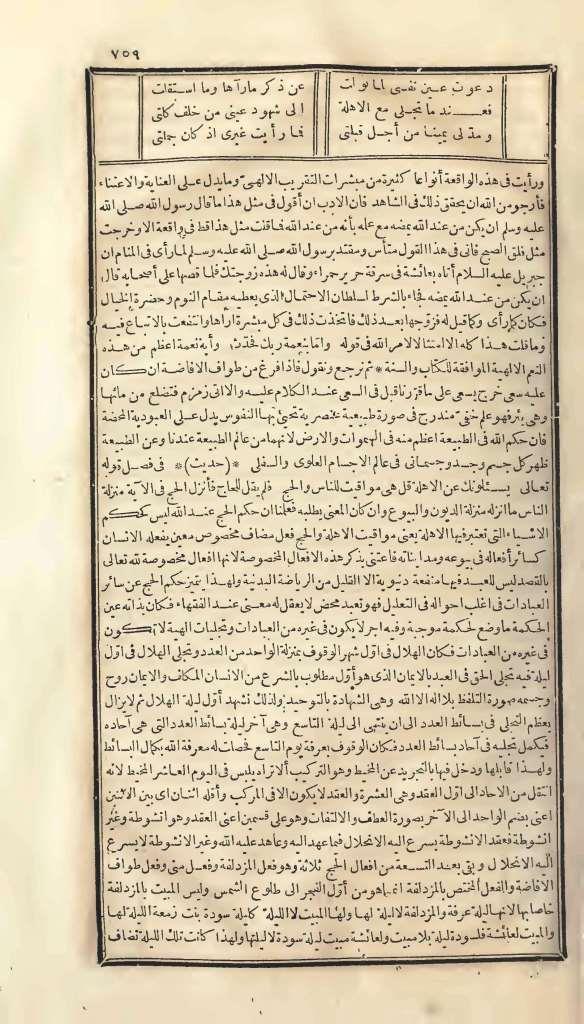 ٧٥٩
دعوت عين نفسى لما نوات عن ذكر مارآها وما استقلت
فعند ما تجلى مع الاهلة الى شهود عينى من خلف كلتى
ومد لى يمينا من أجل قبلتى فما رأيت غيرى اذ كان جلتى
ورأيت فى هذه الواقعة أنواعا كثيرة من مبشرات التقريب الالهى وما يدل على العناية والاعتناء
فأرجو من الله ان يحقق ذلك فى الشاهد فان الادب ان أقول فى مثل هذا ما قال رسول الله صلى الله
عليه وسلم ان يكن من عند الله يمضه مع علمه بأنه من عند الله فما قلت مثل هذا قط فى واقعة الا وخرجت
مثل فلق الصبح فانى فى هذا القول متأس ومقتد برسول الله صلى الله عليه وسلم لما رأى فى المنام ان
جبريل عليه السلام أتاه بعائشة فى سرقة حرير حمراء وقال له هذه زوجتك فلما قصها على أصحابه قال
ان يكن من عند الله يمضه فجاء بالشرط لسلطان الاحتمال الذى يعطيه مقام النوم وحضرة الخيال
فكان كما رأى وكما قيل له فزوجها بعد ذلك فاتخذت ذلك فى كل مبشرة أراها وانتفعت بالاتباع فيه
وما قلت هذا كله الا امتثالا لامر الله فى قوله واما بنعمة ربك فحدث وأية نعمة اعظم من هذه
النعم الالهية الموافقة للكتاب والسنة * ثم نرجع ونقول فاذا فرغ من طواف الافاضة ان كان
عليه سعى خرج يسعى على ما قررناه قبل فى السعى عند الكلام عليه والا اتى زمزم فتضلع من مائها
وهى بئر فهو علم خفى مندرج فى صورة طبيعية عنصرية تحيى بها النفوس يدل على العبودية المحضة
فان حكم الله فى الطبيعة اعظم منه فى السموات والارض لانهما من عالم الطبيعة عندنا وعن الطبيعة
ظهر كل جسم وجسد وجسمانى فى عالم الاجسام العلوى والسفلى *(حديث)* فى فصل قوله
تعالى يسئلونك عن الاهلة قل هى مواقيت للناس والحج فلم يقل للحاج فأنزل الحج فى الآية منزلة
الناس ما انزله منزلة الديون والبيوع وان كان المعنى يطلبه فعلمنا ان حكم الحج عند الله ليس كحكم
الاشياء التى تعتبر فيها الاهلة يعنى مواقيت الاهلة والحج فعل مضاف مخصوص معين يفعله الانسان
كسائر أفعاله فى بيوعه ومدايناته فاعتنى بذكر هذه الافعال المخصوصة لانها افعال مخصوصة لله تعالى
بالقصد ليس للعبد فيها منفعة دنيوية الا القليل من الرياضة البدنية ولهذا يتميز حكم الحج عن سائر
العبادات فى اغلب احواله فى التعليل فهو تعبد محض لا يعقل له معنى عند الفقهاء فكان بذاته عين
الحكمة ما وضع لحكمة موجبة وفيه اجر لا يكون فى غيره من العبادات وتجليات الهية لا تكون
فى غيره من العبادات فكان الهلال فى اول شهر الوقوف بمنزلة الواحد من العدد وتجلى الهلال فى اول
ليلة فيه تجلى الحق فى العبد بالايمان الذى هو أول مطلوب بالشرع من الانسان المكلف والايمان روح
وجسمه صورة التلفظ بلا اله الا الله وهى الشهادة بالتوحيد ولذلك نشهد أول ليلة الهلال ثم لا يزال
يعظم التجلى فى بسائط العدد الى ان ينتهى الى ليلة التاسع وهى آخر ليلة بسائط العدد التى هى آحاده
فيكمل تجليه فى آحاد بسائط العدد فكان الوقوف بعرفة يوم التاسع فحصلت له معرفة الله بكمال البسائط
ولهذا قابلها ودخل فيها بالتجريد عن المخيط وهو التركيب ألا تراه يلبس فى اليوم العاشر المخيط لانه
انتقل من الاحاد الى اول العقد وهى العشرة والعقد لا يكون الا فى المركب وأقله اثنان اى بين الاثنين
اعنى بضم الواحد الى الآخر بصورة العطف والالتفات وهو على قسمين اعنى العقد وهو انشوطة وغير
انشوطة فعقد الانشوطة يسرع اليه الانحلال فيما عهد اليه وعاهد عليه الله وغير الانشوطة لا يسرع
اليه الانحلال وبقى بعد التسعة من افعال الحج ثلاثة وهو فعل المزدلفة وفعل منى وفعل طواف
الافاضة والفعل المختص بالمزدلفة انما هو من أول الفجر الى طلوع الشمس وليس المبيت بالمزدلفة
خاصا بها لانها ليلة عرفة والمزدلفة لا ليلة لها ولها المبيت لا الليلة كليلة سودة بنت زمعة الليلة لها
والمبيت لعائشة فلسودة ليلة بلا مبيت ولعائشة مبيت ليلة سودة لا ليلتها ولهذا كانت تلك الليلة تضاف